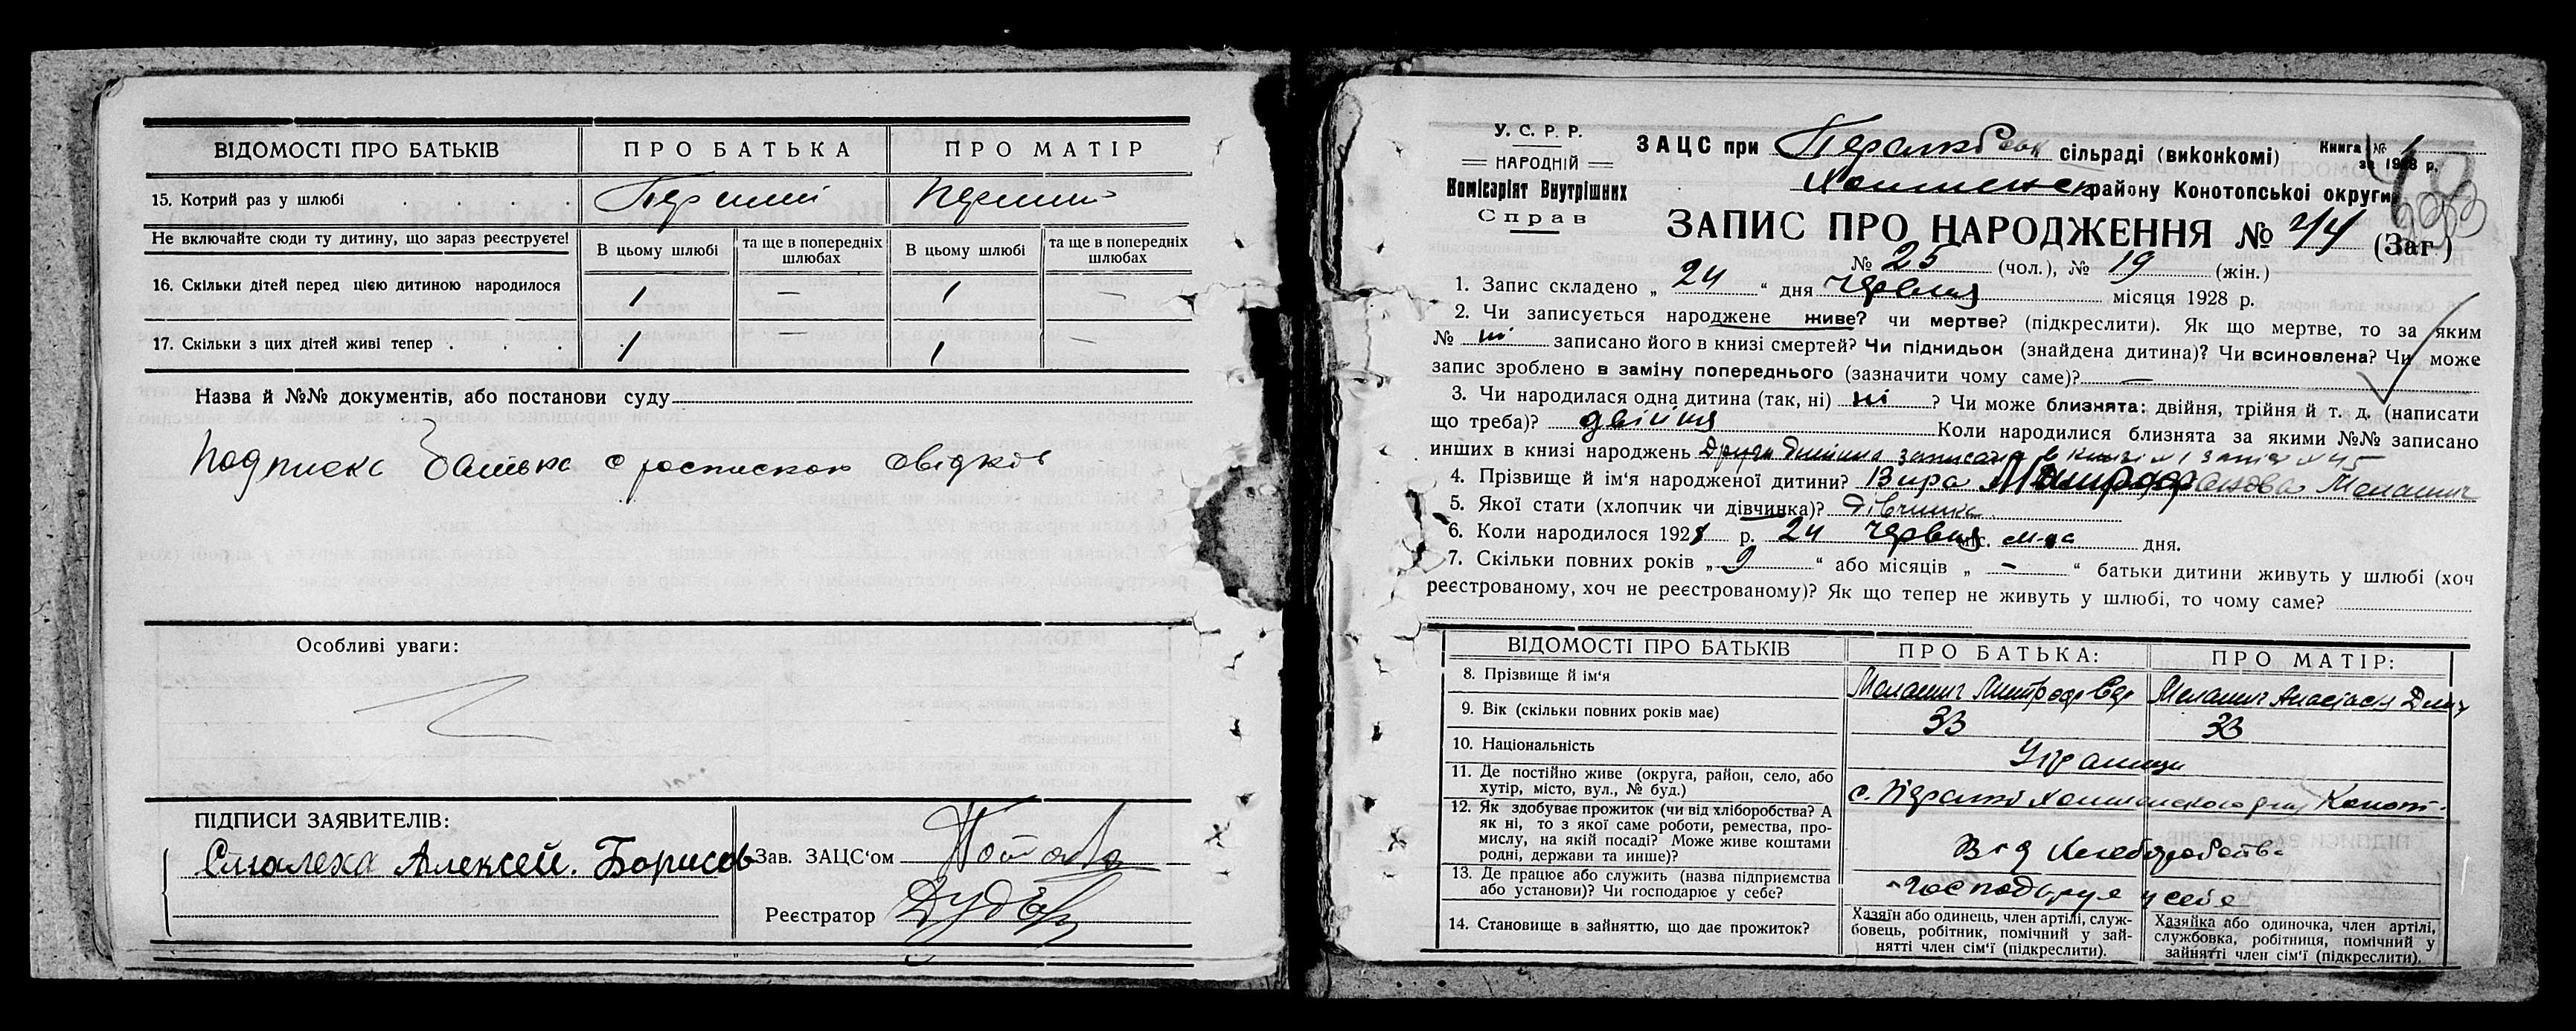 ВІДОМОСТІ ПРО БАТЬКІВ ПРО БАТЬКА ПРО МАТІР
15. Котрий раз у шлюбі . . . . Перший Перший
Не включайте сюди ту дитину, що зараз реєструєте! В цьому шлюбі та ще в попередніх шлюбах В цьому шлюбі та ще в попередніх шлюбах
16. Скільки дітей перед цією дитиною народилося 1 — 1 —
17. Скільки з цих дітей живі тепер . . . 1 — 1 —
Назва й №№ документів, або постанови суду
Подписка батька с роспискою свідків
Особливі уваги:
ПІДПИСИ ЗАЯВИТЕЛІВ:
Алексей. Борисов
Зав. ЗАЦС‘ом
Реєстратор
У. С. Р. Р.
НАРОДНІЙ
Комісаріят Внутрішніх
Справ
ЗАЦС при сільраді (виконкомі) Книга № 1
за 1928 р.
району Конотопської округи
ЗАПИС ПРО НАРОДЖЕННЯ № 44 (Заг.)
№ 25 (чол.), № 19 (жін.)
1. Запис складено „ 24 “ дня червня місяця 1928 р.
2. Чи записується народжене живе? чи мертве? (підкреслити). Як що мертве, то за яким
№ ні записано його в книзі смертей? Чи підкидьок (знайдена дитина)? Чи всиновлена? Чи може
запис зроблено в заміну попереднього (зазначити чому саме)? —
3. Чи народилася одна дитина (так, ні) ні ? Чи може близнята: двійня, трійня й т. д. (написати
що треба)? двійня Коли народилися близнята за якими №№ записано
инших в книзі народжень Друга дитина записана в книзі № 1 запис № 45
4. Прізвище й ім‘я народженої дитини? Вира Митрофанова Маламич
5. Якої стати (хлопчик чи дівчинка)? дівчинка
6. Коли народилося 1928 р. 24 червня міс. дня.
7. Скільки повних років „ 9 “ або місяців „ — “ батьки дитини живуть у шлюбі (хоч
реєстрованому, хоч не реєстрованому)? Як що тепер не живуть у шлюбі, то чому саме?
ВІДОМОСТІ ПРО БАТЬКІВ ПРО БАТЬКА: ПРО МАТІР:
8. Прізвище й ім‘я Маламич Митроф Маламич
9. Вік (скільки повних років має) 33 33
10. Національність Українці
11. Де постійно живе (округа, район, село, або
хутір, місто, вул., № буд.) с. Конот.
12. Як здобуває прожиток (чи від хліборобства? А
як ні, то з якої саме роботи, ремества, про-
мислу, на якій посаді? Може живе коштами
родні, держави та инше)? Від Хлеборобства
13. Де працює або служить (назва підприємства
або установи)? Чи господарює у себе? господарує у себе
14. Становище в зайняттю, що дає прожиток?
Хазяїн або одинець, член артілі, служ-
бовець, робітник, помічний у зай-
нятті член сім‘ї (підкреслити).
Хазяйка або одиночка, член артілі,
службовка, робітниця, помічний у
зайнятті член сім‘ї (підкреслити).